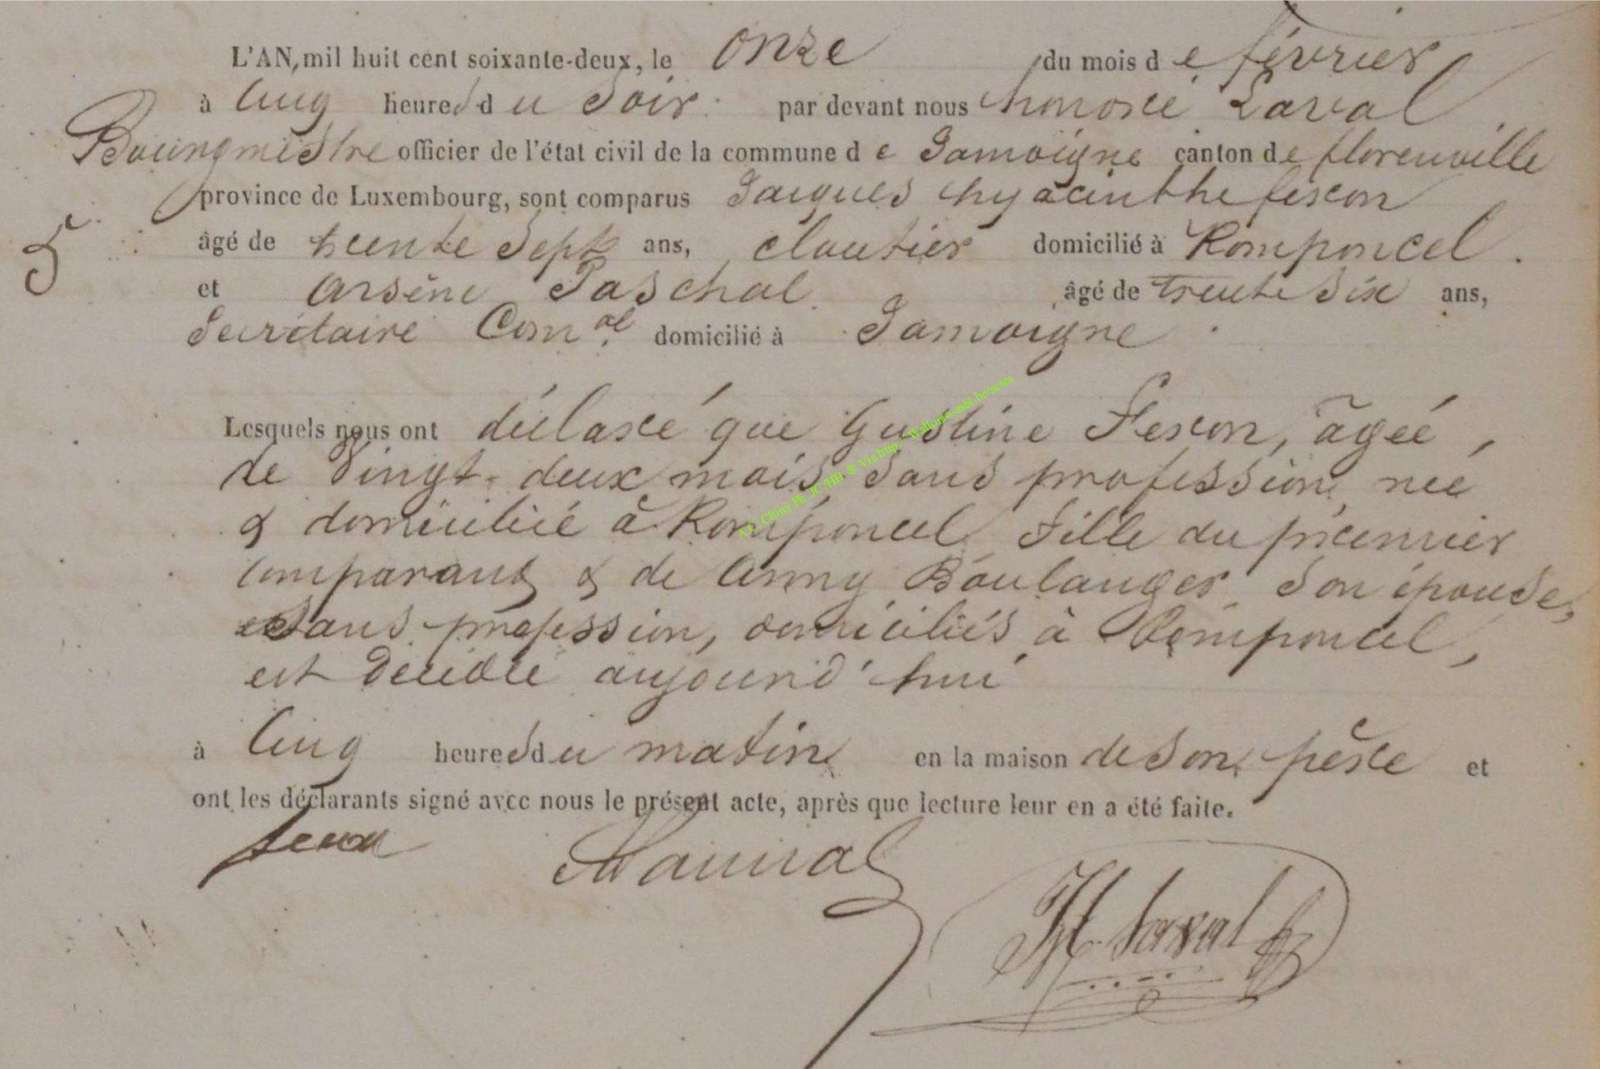 L'AN, mil huit cent soixante-deux, le onze du mois de février
à cinq heures du soir par devant nous honoré Laval
Bourgmestre officier de l'état civil de la commune de Jamoigne canton de florenville
province de Luxembourg, sont comparus Jacques hyacinthe fexon
5 âgé de trente sept ans, cloutier domicilié à Romponcel.
et arsène Paschal âgé de trente six ans,
Secrétaire Com.al domicilié à Jamoigne.
Lesquels nous ont déclaré que Gustine Fexon, âgée,
de Vingt-deux mois, sans profession, née
& domiciliée à Romponcel, Fille du premier
comparant & de Anny Boulanger son épouse,
sans profession, domiciliés à Romponcel,
est décédée aujourd'hui
à cinq heures du matin en la maison de son père et
ont les déclarants signé avec nous le présent acte, après que lecture leur en a été faite.
H. Laval